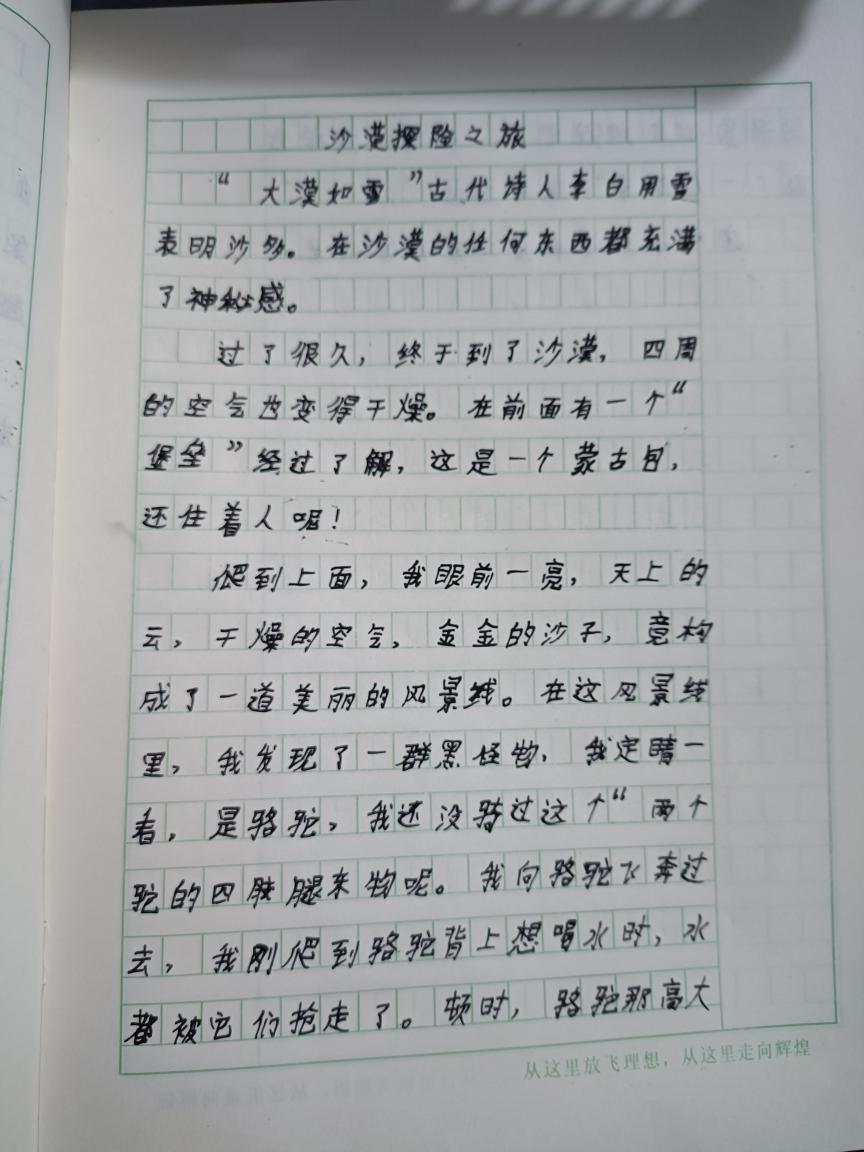 沙漠探险之旅
“大漠如雪”古代诗人李白用雪
表明沙多。在沙漠的任何东西都充满
了神秘感。
过了很久，终于到了沙漠，四周
的空气也变得干燥。在前面有一个“
堡垒”经过了解，这是一个蒙古包，
还住着人呢！
爬到上面，我眼前一亮，天上的
云，干燥的空气，金金的沙子，竟构
成了一道美丽的风景线。在这风景线
里，我发现了一群黑怪物，我定睛一
看，是骆驼，我还没骑过这个“两个
驼的四肢腿东物呢。我向骆驼飞奔过
去，我刚爬到骆驼背上想喝水时，水
都被它们抢走了。顿时，骆驼那高大
从这里放飞理想，从这里走向辉煌